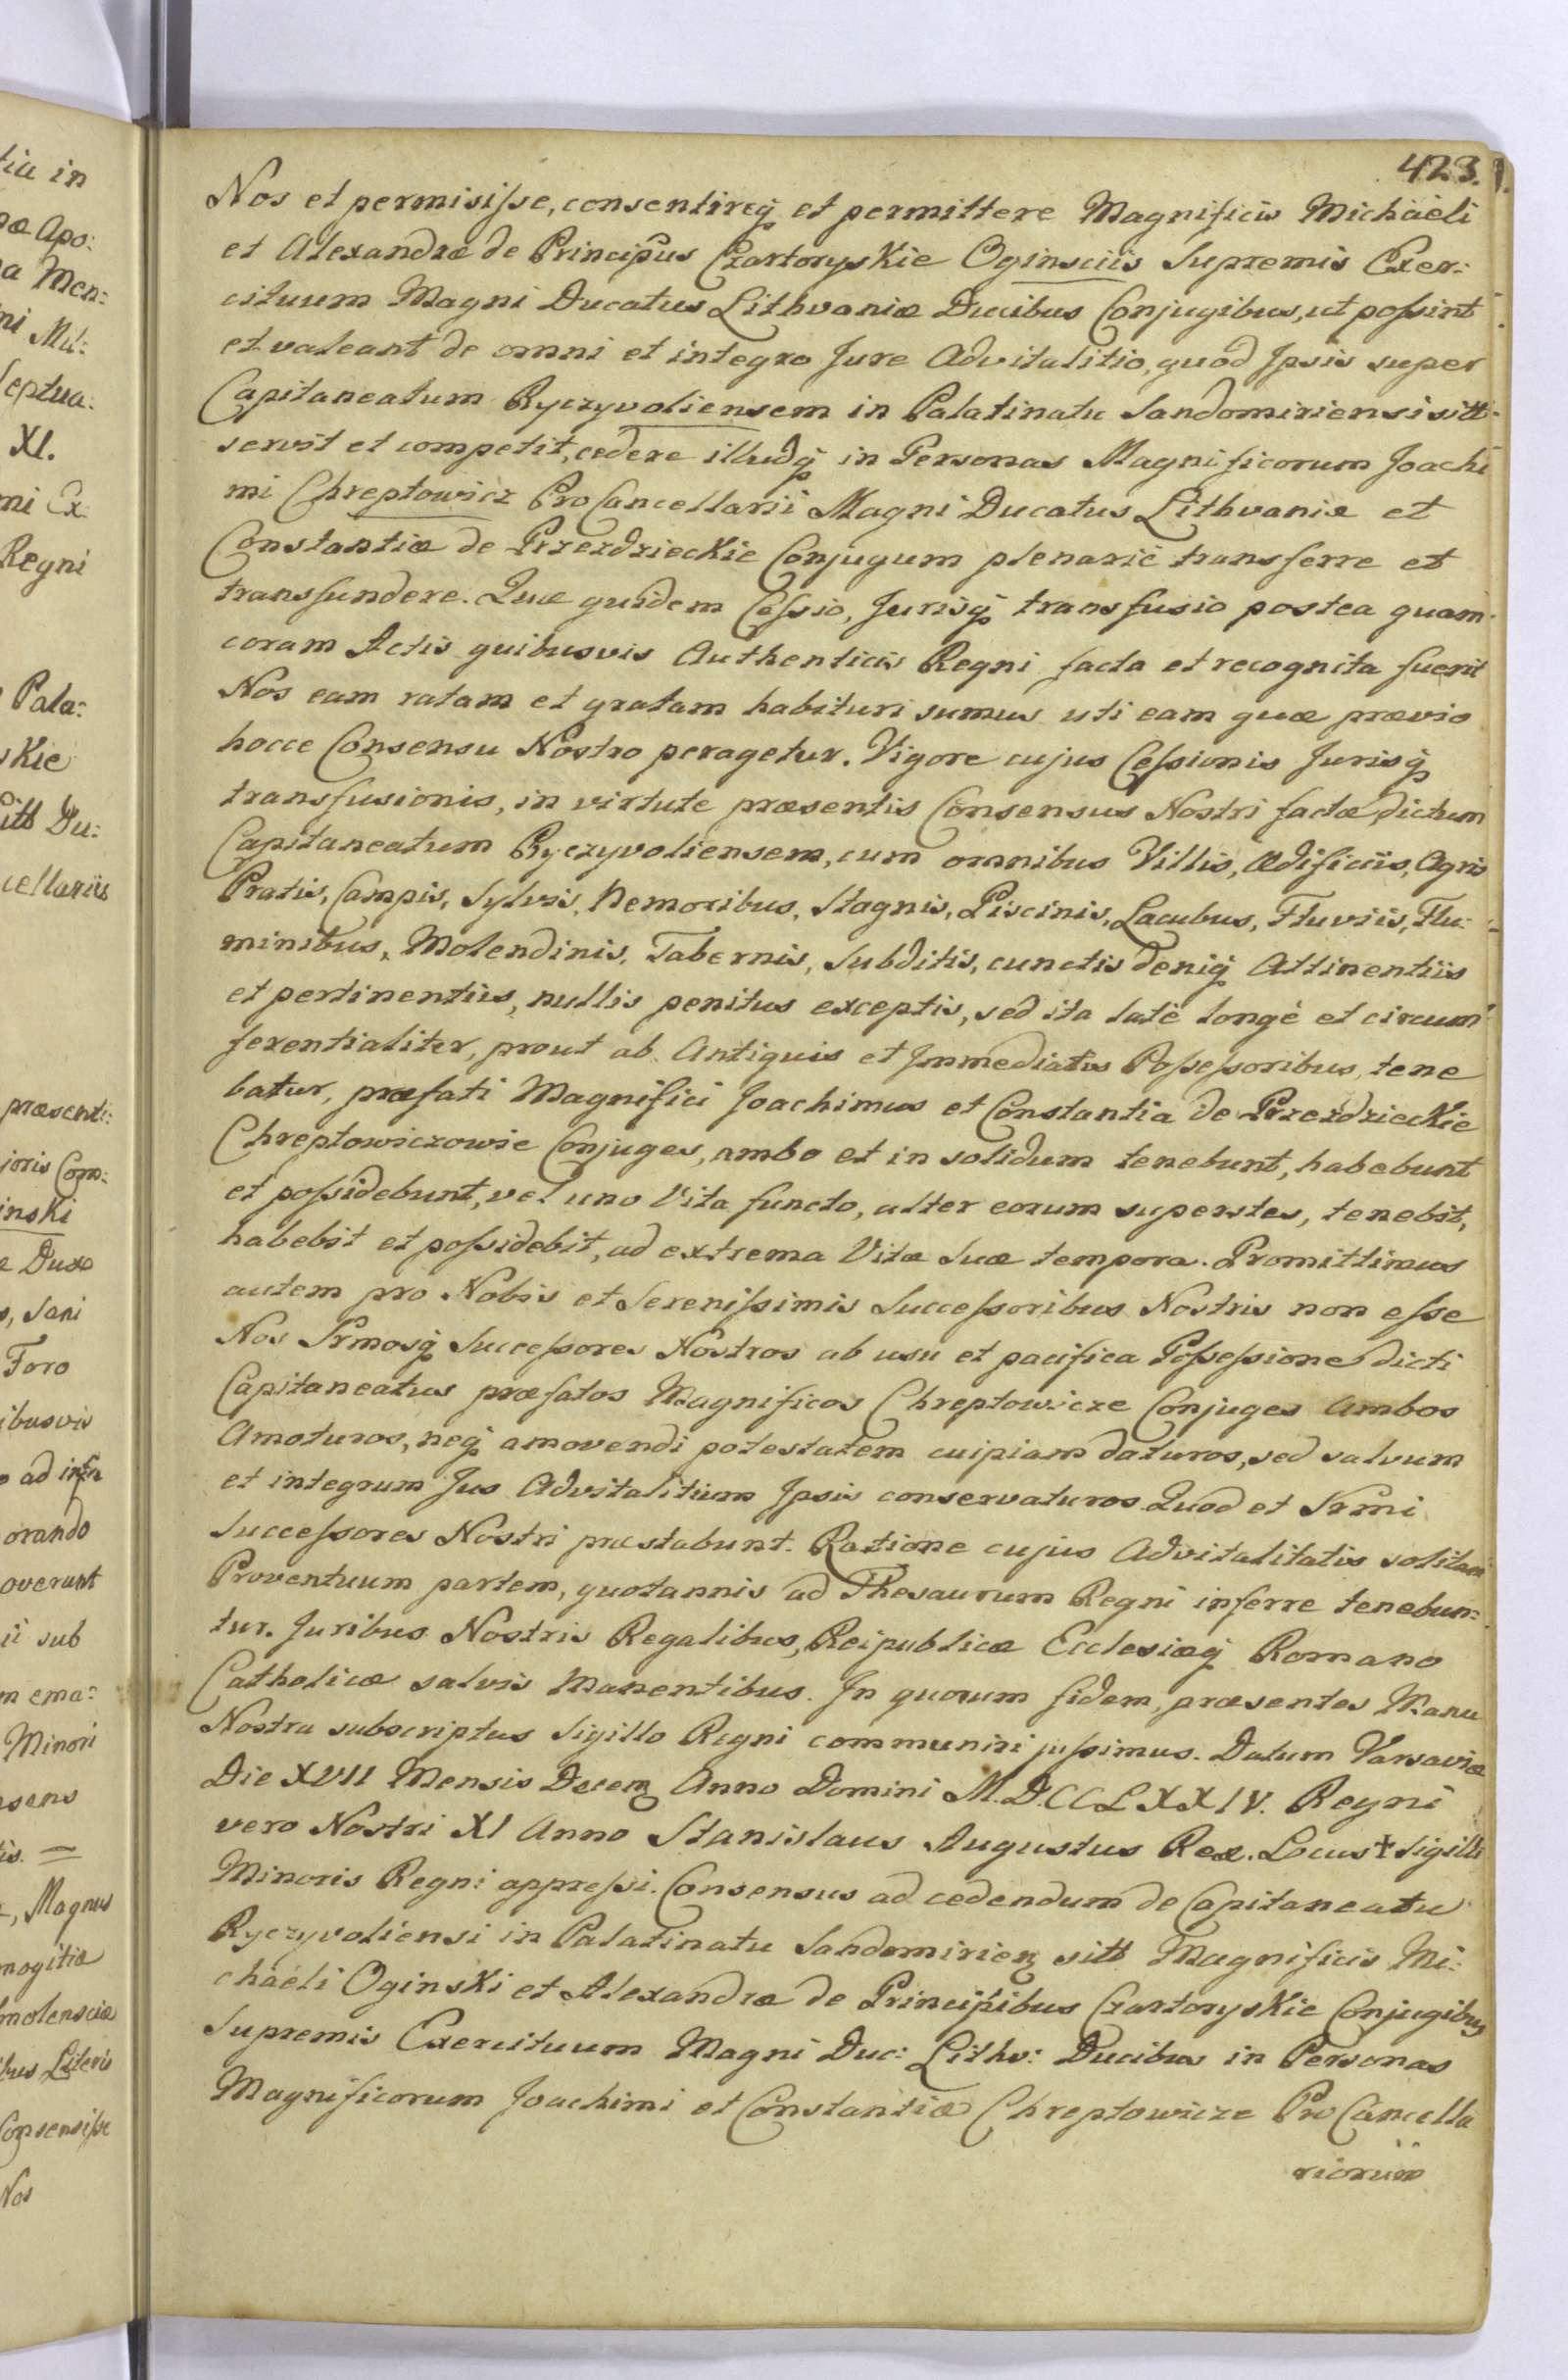 423.
Nos et permisisse, consentireq₃ et permittere Magnificis Michaeli
et Alexandræ de Principibus Czartoryskie Oginsciis Supremis Exer:
cituum Magni Ducatus Lithvaniæ Ducibus Conjugibus, ut possint
et valeant de omni et integro Jure Advitalitio, quod Ipsis super
Capitaneatum Ryczyvoliensem in Palatinatu Sandomiriensi sitt:
servit et competit, cedere illudq₃ in Personas Magnificorum Joachi
mi Chreptowicz ProCancellarii Magni Ducatus Lithvaniæ et
Constantiæ de Przezdzieckie Conjugum plenariè transferre et
transfundere. Quæ quidem Cessio, Jurisq₃ transfusio postea quam
coram Actis quibusvis Authenticis Regni facta et recognita fuerit
Nos eam ratam et gratam habituri sumus uti eam quæ prævio
hocce Consensu Nostro peragetur. Vigore cujus Cessionis Jurisq₃
transfusionis, in virtute præsentis Consensus Nostri factæ dictum
Capitaneatum Ryczyvoliensem, cum omnibus Villis, Ædificiis, Agris
Pratis, Campis, Sylvis, Nemoribus, Stagnis, Piscinis, Lacubus, Fluviis, Flu:
minibus, Molendinis, Tabernis, Subditis, cunctis deniq₃ Attinentiis
et pertinentiis, nullis penitus exceptis, sed ita latè longè et circum
ferentialiter, prout ab Antiquis et Immediatis Possessoribus, tene
batur, præfati Magnifici Joachimus et Constantia de Przezdzieckie
Chreptowiczowie Conjuges, ambo et in solidum tenebunt, habebunt
et possidebunt, vel uno Vita functo, alter eorum superstes, tenebit,
habebit et possidebit, ad extrema Vitæ Suæ tempora. Promittimus
autem pro Nobis et Serenissimis Successoribus Nostris non esse
Nos Srmosq₃ Successores Nostros ab usu et pacifica Possessione dicti
Capitaneatus præfatos Magnificos Chreptowicze Conjuges Ambos
Amoturos, neq₃ amovendi potestatem cuipiam daturos, sed salvum
et integrum Jus Advitalitium Ipsis conservaturos. Quod et Srmi
Successores Nostri præstabunt. Ratione cujus Advitalitatis solitam
Proventuum partem, quotannis ad Thesaurum Regni inferre tenebun:
tur. Juribus Nostris Regalibus, Reipublicæ Ecclesiæq₃ Romano
Catholicæ salvis Manentibus. In quorum fidem, præsentes Manu
Nostra subscriptas Sigillo Regni communiri jussimus. Datum Varsaviæ
Die XVII Mensis Decem₃ Anno Domini M.D.CCLXXIV. Regni
vero Nostri XI Anno Stanislaus Augustus Rex. Locus † Sigilli
Minoris Regni appressi. Consensus ad cedendum de Capitaneatu
Ryczyvoliensi in Palatinatu Sandomirien₃ sitt Magnificis Mi:
chaeli Oginski et Alexandræ de Principibus Czartoryskie Conjugibus
Supremis Exercituum Magni Duc: Lithv: Ducibus in Personas
Magnificorum Joachimi et Constantiæ Chreptowicze ProCancella
riorum